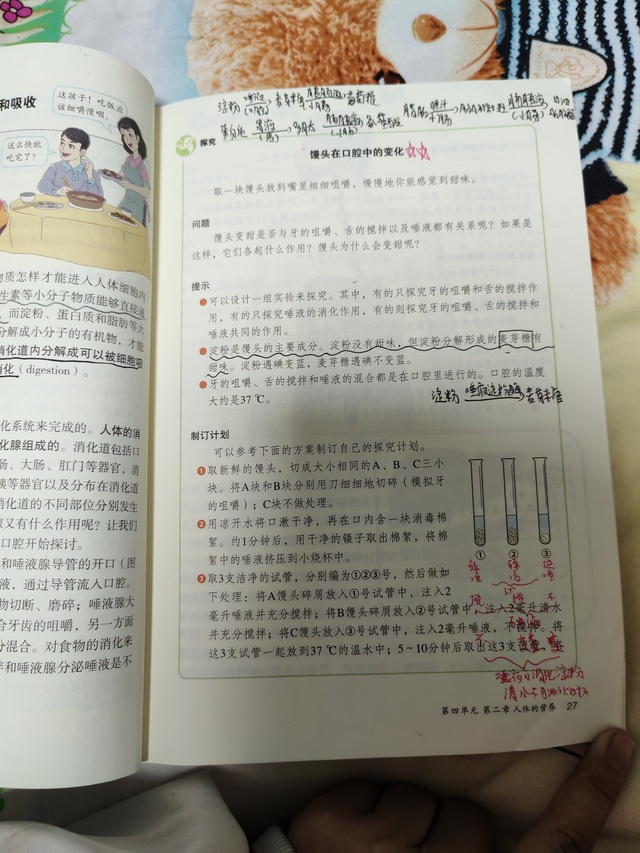 和吸收
这孩子！吃饭应
该细嚼慢咽。
这么快就
吃完了？
物质怎样才能进入人体细胞内
生素等小分子物质能够直接通
，而淀粉、蛋白质和脂肪等大
分解成小分子的有机物，才能
消化道内分解成可以被细胞吸
消化（digestion）。
化系统来完成的。人体的消
化腺组成的。消化道包括口
肠、大肠、肛门等器官，消
胰等器官以及分布在消化道
消化道的不同部分别发生
又有什么作用呢？让我们
口腔开始探讨。
和唾液腺导管的开口（图
液，通过导管流入口腔。
物切断、磨碎；唾液腺大
合牙齿的咀嚼，另一方面
分混合。对食物的消化来
拌和唾液腺分泌唾液是不
淀粉 唾液 (口腔) 麦芽糖 (小肠) 葡萄糖
蛋白质 (胃) 多肽 (小肠) 氨基酸
脂肪 胆汁 小肠 (小肠)
探究
馒头在口腔中的变化
取一块馒头放到嘴里细细咀嚼，慢慢地你能感觉到甜味。
问题
馒头变甜是否与牙的咀嚼、舌的搅拌以及唾液都有关系呢？如果是
这样，它们各起什么作用？馒头为什么会变甜呢？
提示
●可以设计一组实验来探究。其中，有的只探究牙的咀嚼和舌的搅拌作
用，有的只探究唾液的消化作用，有的则探究牙的咀嚼、舌的搅拌和
唾液共同的作用。
●淀粉是馒头的主要成分。淀粉没有甜味，但淀粉分解形成的麦芽糖有
甜味。淀粉遇碘变蓝，麦芽糖遇碘不变蓝。
●牙的咀嚼、舌的搅拌和唾液的混合都是在口腔里进行的。口腔的温度
大约是37 ℃。
淀粉 唾液淀粉酶 麦芽糖
制订计划
可以参考下面的方案制订自己的探究计划。
1 取新鲜的馒头，切成大小相同的A、B、C三小
块。将A块和B块分别用刀细细地切碎（模拟牙
的咀嚼）；C块不做处理。
2 用凉开水将口漱干净，再在口内含一块消毒棉
絮。约1分钟后，用干净的镊子取出棉絮，将棉
絮中的唾液挤压到小烧杯中。
3 取3支洁净的试管，分别编为①②③号，然后做如
下处理：将A馒头碎屑放入①号试管中，注入2
毫升唾液并充分搅拌；将B馒头碎屑放入②号试管中，注入2毫升清水
并充分搅拌；将C馒头放入③号试管中，注入2毫升唾液，不搅拌。将
这3支试管一起放到37 ℃的温水中；5~10分钟后取出这3支试管，各
① ② ③
第四单元 第二章 人体的营养 27